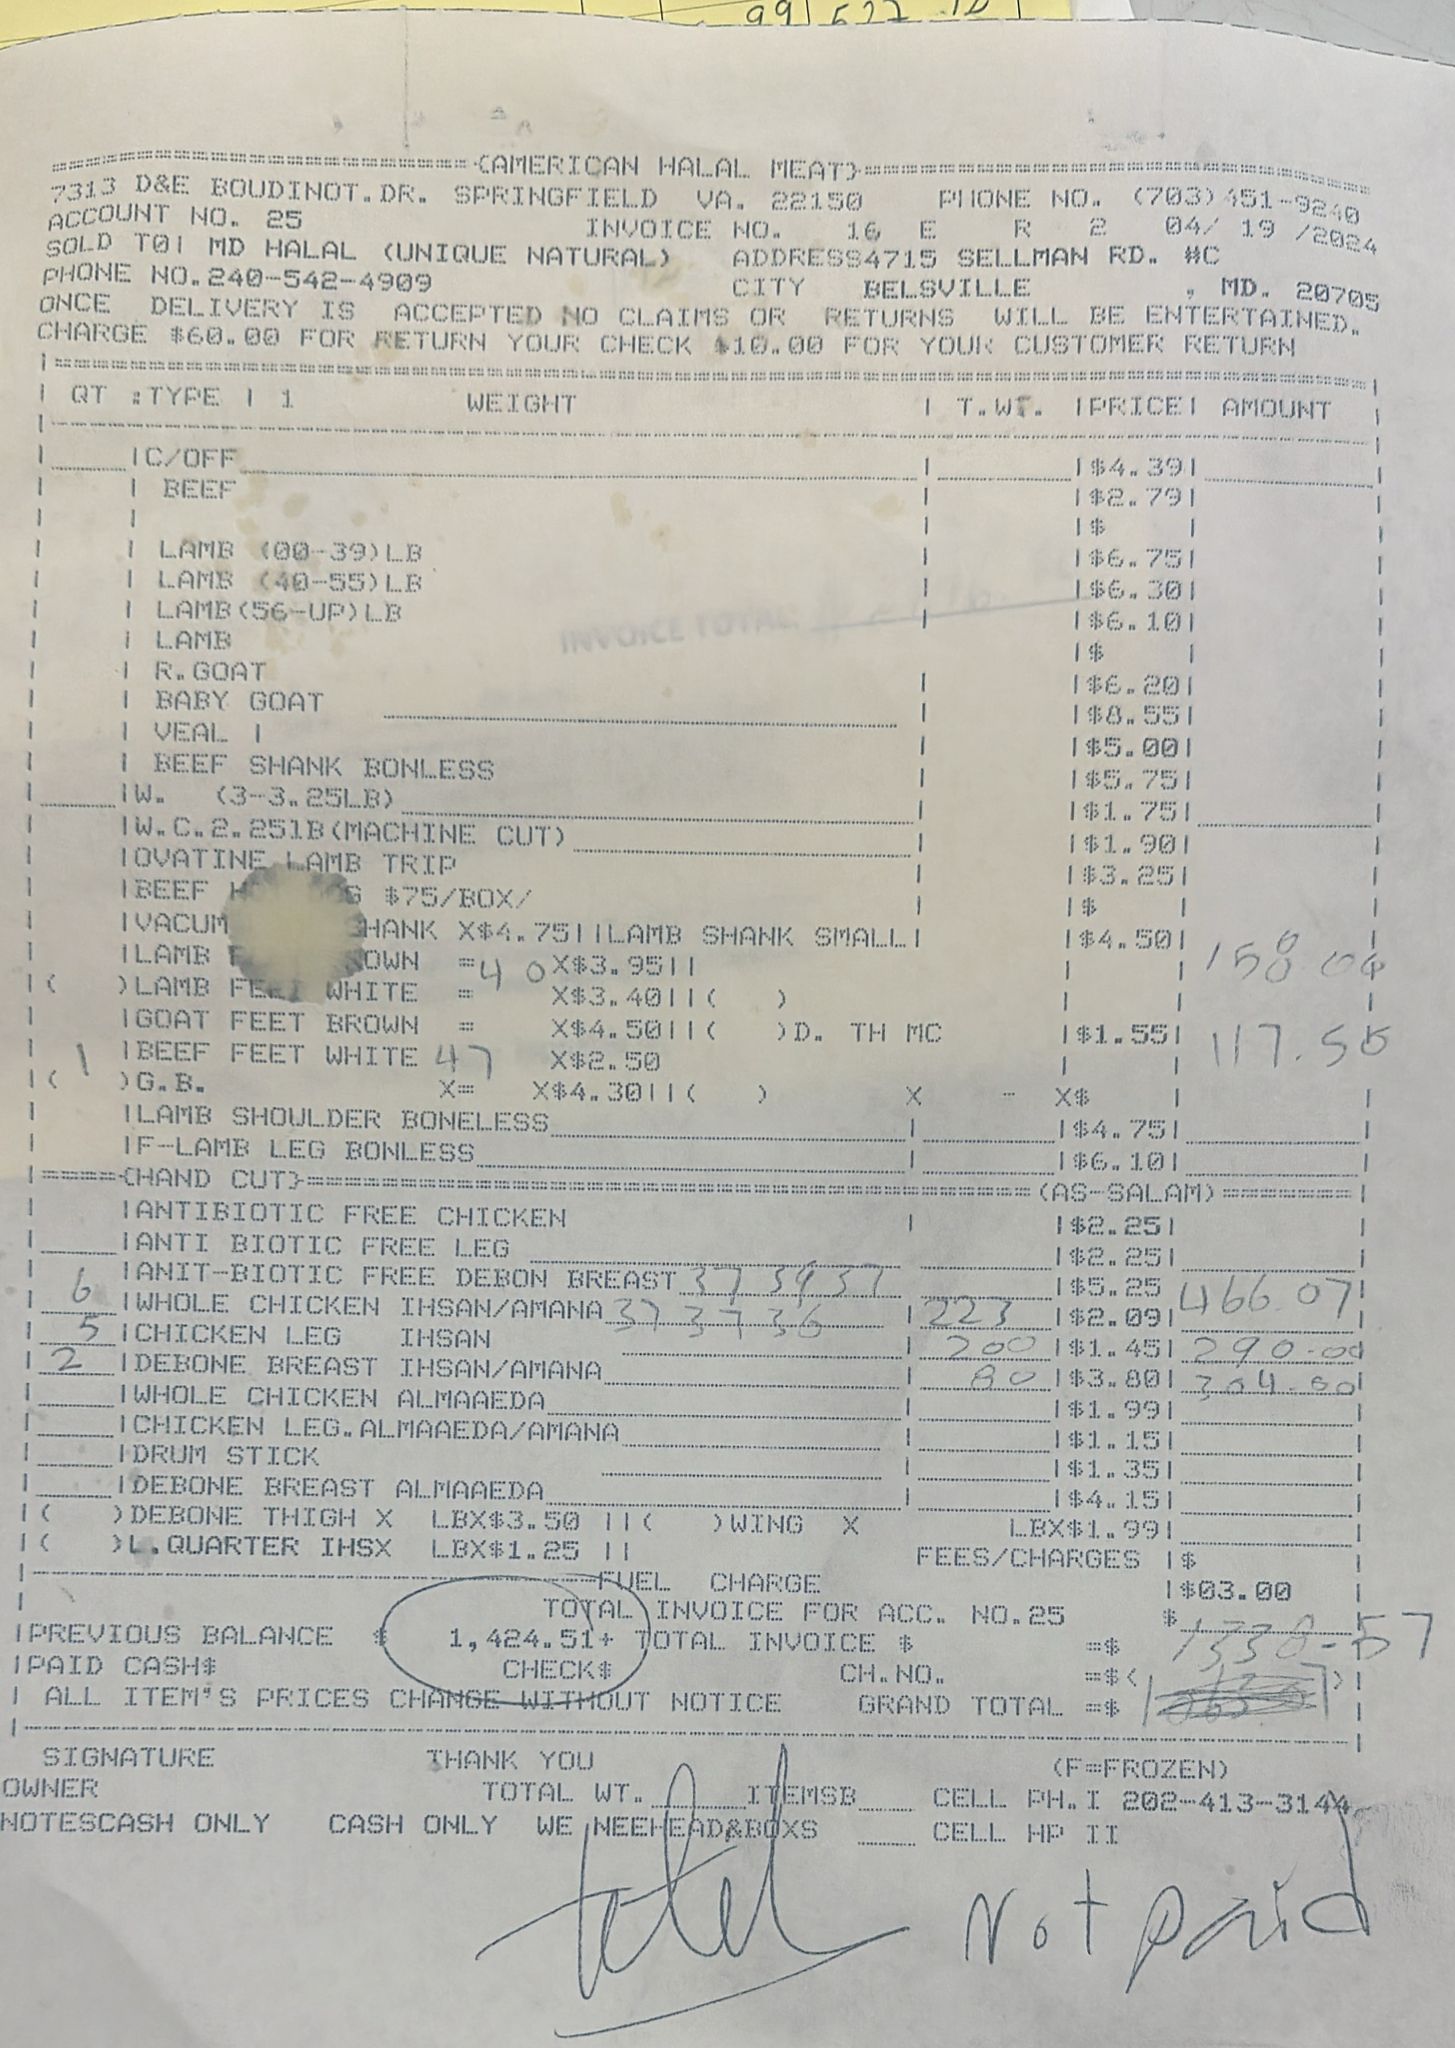 99 527.12
========================={AMERICAN HALAL MEAT}==============================
7313 D&E BOUDINOT.DR. SPRINGFIELD VA. 22150 PHONE NO. (703)451-9240
ACCOUNT NO. 25 INVOICE NO. 16 E R 2 04/ 19 /2024
SOLD TO| MD HALAL (UNIQUE NATURAL) ADDRESS4715 SELLMAN RD. #C
PHONE NO.240-542-4909 CITY BELSVILLE , MD. 20705
ONCE DELIVERY IS ACCEPTED NO CLAIMS OR RETURNS WILL BE ENTERTAINED.
CHARGE $60.00 FOR RETURN YOUR CHECK $10.00 FOR YOUR CUSTOMER RETURN
QT :TYPE | 1 WEIGHT | T.WT. |PRICE| AMOUNT
|C/OFF |$4.39|
| BEEF |$2.79|
| |$ |
| LAMB (00-39)LB |$6.75|
| LAMB (40-55)LB |$6.30|
| LAMB(56-UP)LB |$6.10|
INVOICE TOTAL
| LAMB |$ |
| R.GOAT |$6.20|
| BABY GOAT |$8.55|
| VEAL | |$5.00|
| BEEF SHANK BONLESS |$5.75|
|W. (3-3.25LB) |$1.75|
|W.C.2.25lB(MACHINE CUT) |$1.90|
|OVATINE LAMB TRIP |$3.25|
|BEEF $75/BOX/ |$ |
|VACUM HANK X$4.75||LAMB SHANK SMALL| |$4.50|
|LAMB OWN =40 X$3.95|| 158.00
|( )LAMB FEET WHITE = X$3.40||( )
|GOAT FEET BROWN = X$4.50||( )D. TH MC |$1.55|
1 |BEEF FEET WHITE 47 X$2.50 117.50
|( )G.B. X= X$4.30||( ) X - X$ |
|LAMB SHOULDER BONELESS |$4.75|
|F-LAMB LEG BONLESS |$6.10|
|=====(HAND CUT)==============================================(AS-SALAM)========|
|ANTIBIOTIC FREE CHICKEN |$2.25|
|ANTI BIOTIC FREE LEG |$2.25|
|ANIT-BIOTIC FREE DEBON BREAST 37 39 37 |$5.25
6 |WHOLE CHICKEN IHSAN/AMANA 37 37 36 | 223 |$2.09| 466.07
5 |CHICKEN LEG IHSAN 200 |$1.45| 290.00
2 |DEBONE BREAST IHSAN/AMANA 80 |$3.80| 304.00
|WHOLE CHICKEN ALMAAEDA |$1.99|
|CHICKEN LEG.ALMAAEDA/AMANA |$1.15|
|DRUM STICK |$1.35|
|DEBONE BREAST ALMAAEDA |$4.15|
|( )DEBONE THIGH X LBX$3.50 ||( )WING X LBX$1.99|
|( )L.QUARTER IHSX LBX$1.25 || FEES/CHARGES |$
FUEL CHARGE |$03.00
TOTAL INVOICE FOR ACC. NO.25 $
|PREVIOUS BALANCE $ 1,424.51+ TOTAL INVOICE $ =$ 1338-57
|PAID CASH$ CHECK$ CH.NO. =$( )
| ALL ITEM'S PRICES CHANGE WITHOUT NOTICE GRAND TOTAL =$
SIGNATURE THANK YOU (F=FROZEN)
OWNER TOTAL WT. ITEMSB CELL PH.I 202-413-3144
NOTESCASH ONLY CASH ONLY WE NEEHEAD&BOXS CELL HP II
Not paid